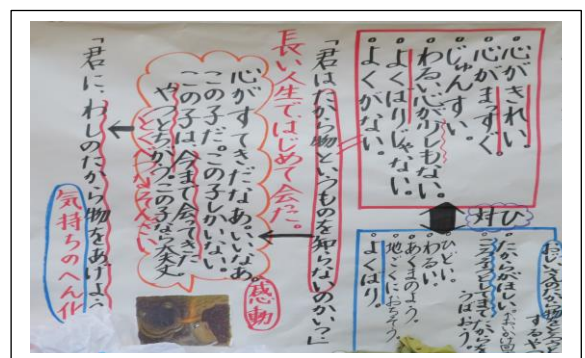 心がきれい。
心がまっすぐ。
じゅんすい。
わるい心が少しもない。
よくばりじゃない。
よくがない。
対ひ
たからがほしい。
ひどい。
わるい。
あくまのよう。
地ごくにおちそう。
よくばり。
「君はたから物というものを知らないのかい？」
長い人生ではじめて会だ。
感動
心がすてきだなあ。いいなあ。
この子だ。この子しかいない。
この子は、今まで会ってきた
やつとちがう。この子なら大丈夫
「君に、わしのたから物をあげよう
気持ちのへん化